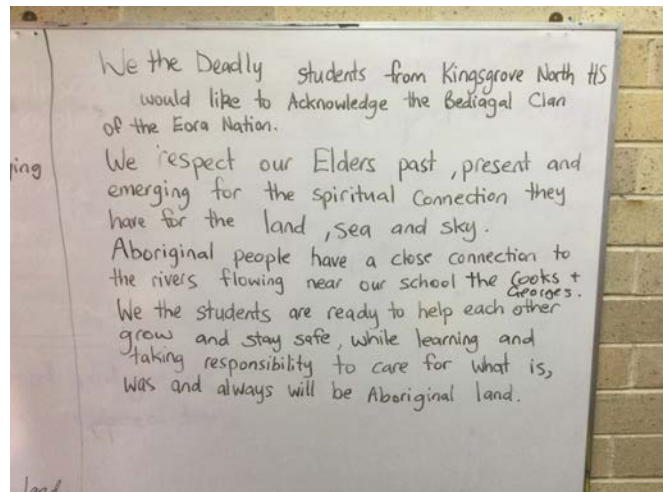 We the Deadly students from Kingsgrove North HS
would like to Acknowledge the Bediagal Clan
of the Eora Nation.
We respect our Elders past, present and
emerging for the spiritual connection they
have for the land, sea and sky.
Aboriginal people have a close connection to
the rivers flowing near our school the Cooks +
Georges.
We the students are ready to help each other
grow and stay safe, while learning and
taking responsibility to care for what is,
was and always will be Aboriginal land.
ing
land